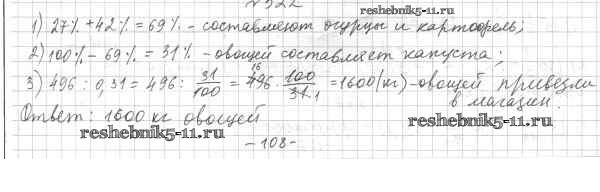 522
reshebnik5-11.ru
1) 27% + 42% = 69% - составляют огурцы и картофель;
2) 100% - 69% = 31% - овощей составляет капуста;
3) 496 : 0,31 = 496 : 31/100 = 496 16 · 100/31 1 = 1600 (кг) - овощей привезли
в магазин.
Ответ: 1600 кг овощей
reshebnik5-11.ru
reshebnik5-11.ru
- 108 -